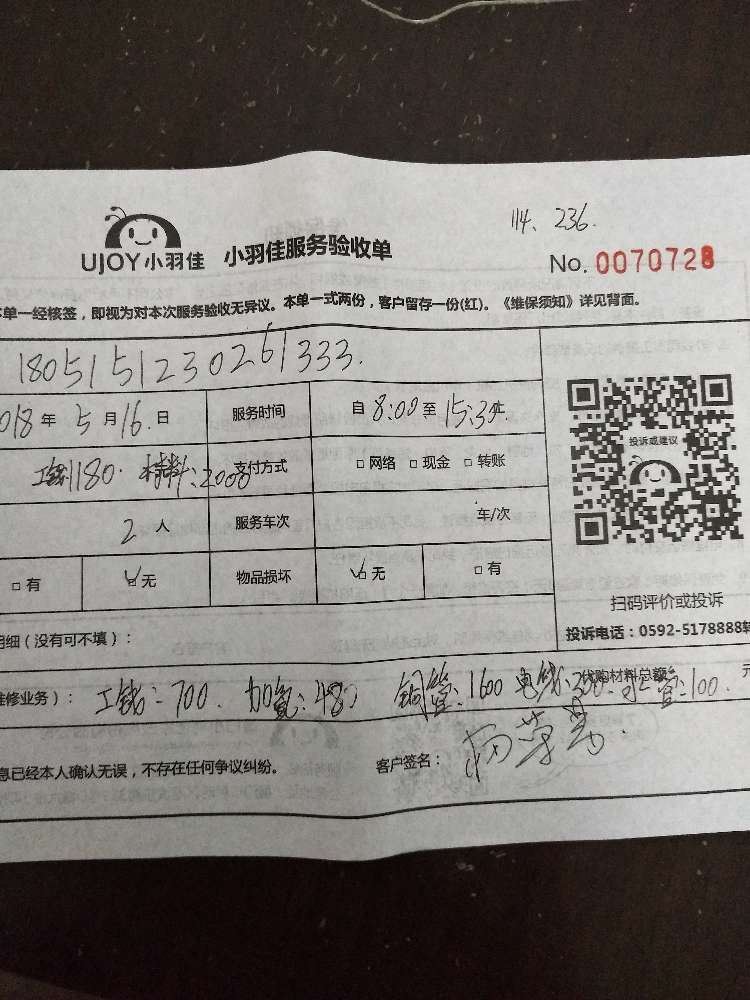 114. 236.
UJOY小羽佳 小羽佳服务验收单
No. 0070728
本单一经核签，即视为对本次服务验收无异议。本单一式两份，客户留存一份(红)。《维保须知》详见背面。
180515123026 1333.
018 年 5 月 16 日 服务时间 自 8:00 至 15:30 止
工钱1180. 材料:2000 支付方式 □网络 □现金 □转账
2 人 服务车次 车/次
投诉或建议
□有 □无 物品损坏 □无 □有
扫码评价或投诉
明细（没有可不填）：
投诉电话：0592-5178888转
维修业务）： 工钱:700. 加氟:480 铜管:1600 电线:300. 水管:100. 优购材料总额: 元
息已经本人确认无误，不存在任何争议纠纷。 客户签名：